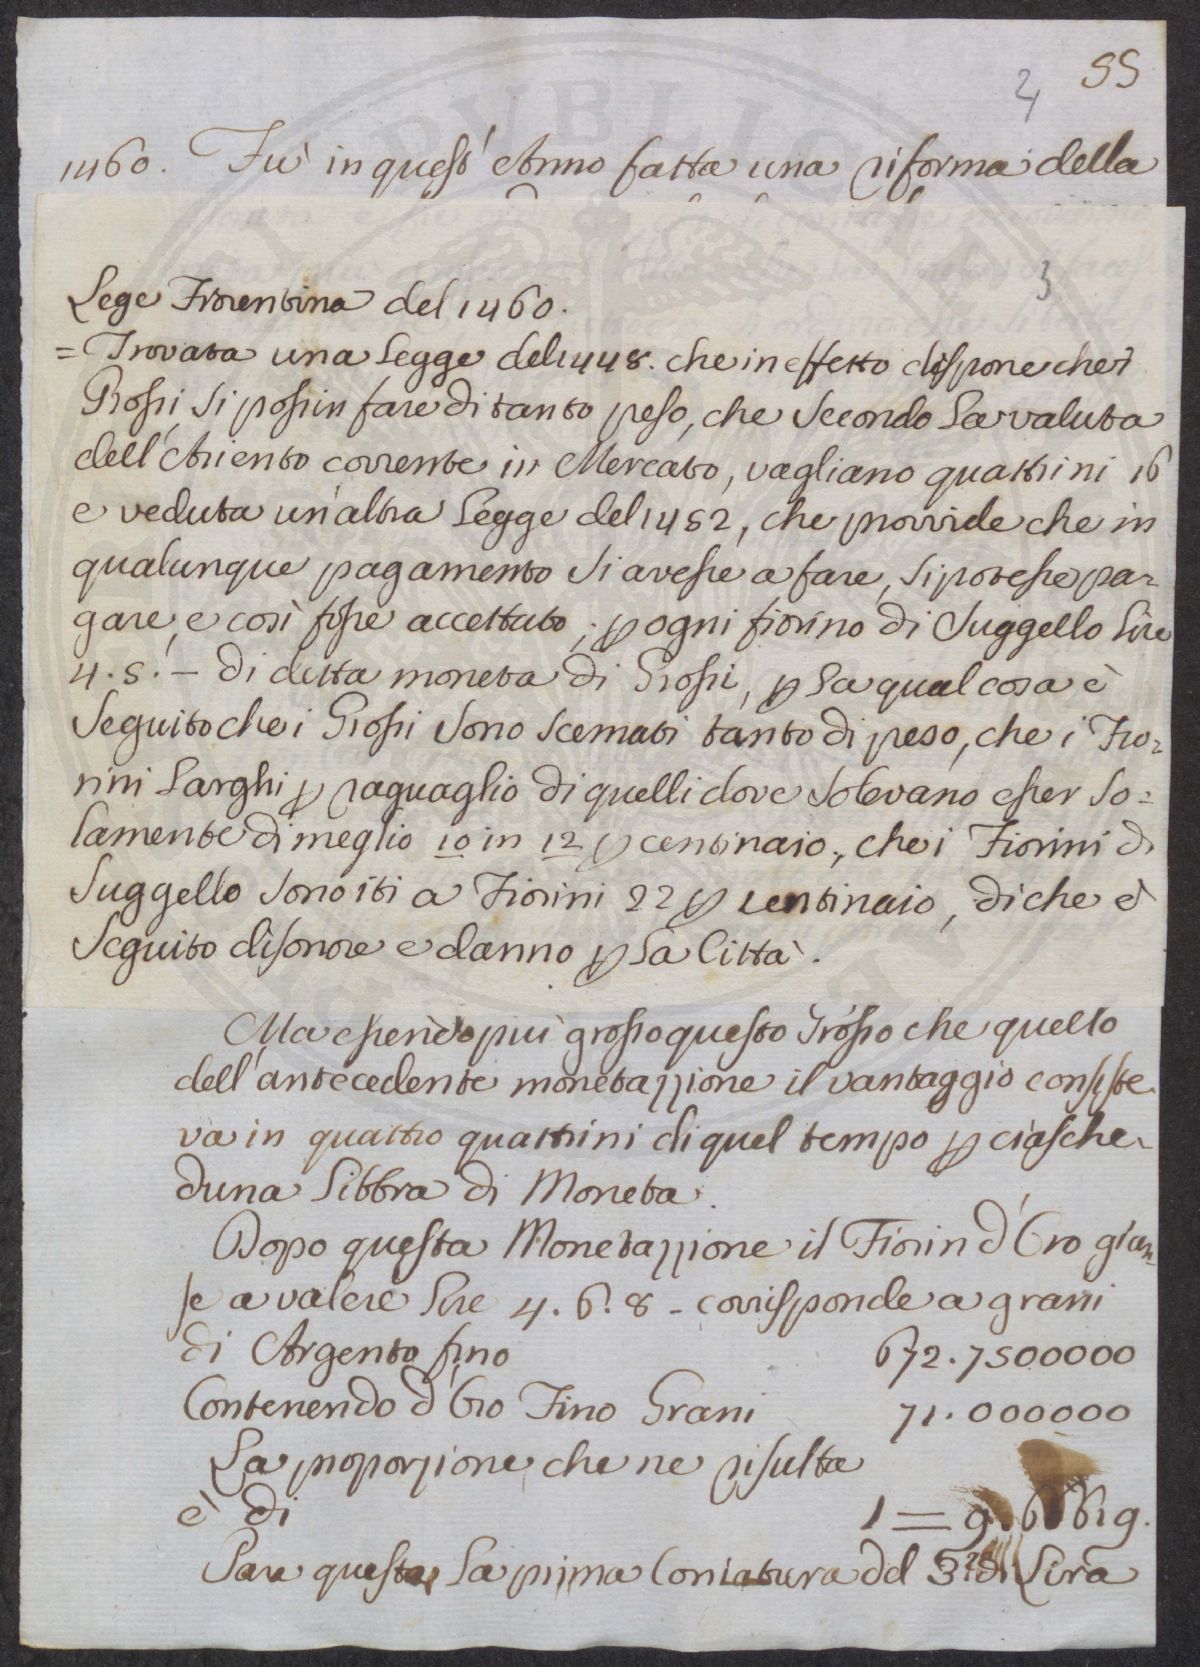 55
2
1460. Fu' in quest'Anno fatta una riforma della
3
Lege Fiorentina del 1460.
= Trovata una Legge del 1448. che in effetto dispone che i
Grossi, si possin fare di tanto peso, che secondo la valuta
dell'Ariento corrente in Mercato, vagliano quattrini 16
e veduta un'altra Legge del 1452, che provvide che in
qualunque pagamento si avesse a fare, si potesse pa=
gare, e così fosse accettato, p ogni fiorino di Suggello Lire
4. 5. — di detta moneta di Grossi, p la qual cosa è
seguito che i Grossi sono scemati tanto di peso, che i Fio=
rini Larghi p raguaglio di quelli dove solevano esser so=
lamente di meglio 10 in 12 p centinaio, che i Fiorini di
Suggello sono iti a Fiorini 22 p centinaio, di che è
seguito disonore e danno p la Città.
Ma essendo più grosso questo Grosso che quello
dell'antecedente monetazzione il vantaggio consiste
va in quattro quattrini di quel tempo p ciasche=
duna Libbra di Moneta.
Dopo questa Monetazzione il Fiorin d'Oro giun=
se a valere Lire 4. 6. 8 - corrisponde a grani
di Argento fino 672.7500000
Contenendo d'Oro Fino Grani 71.000000
La proporzione che ne risulta
è di 1 = 9.6619.
Pare questa la prima Coniatura del di Lira